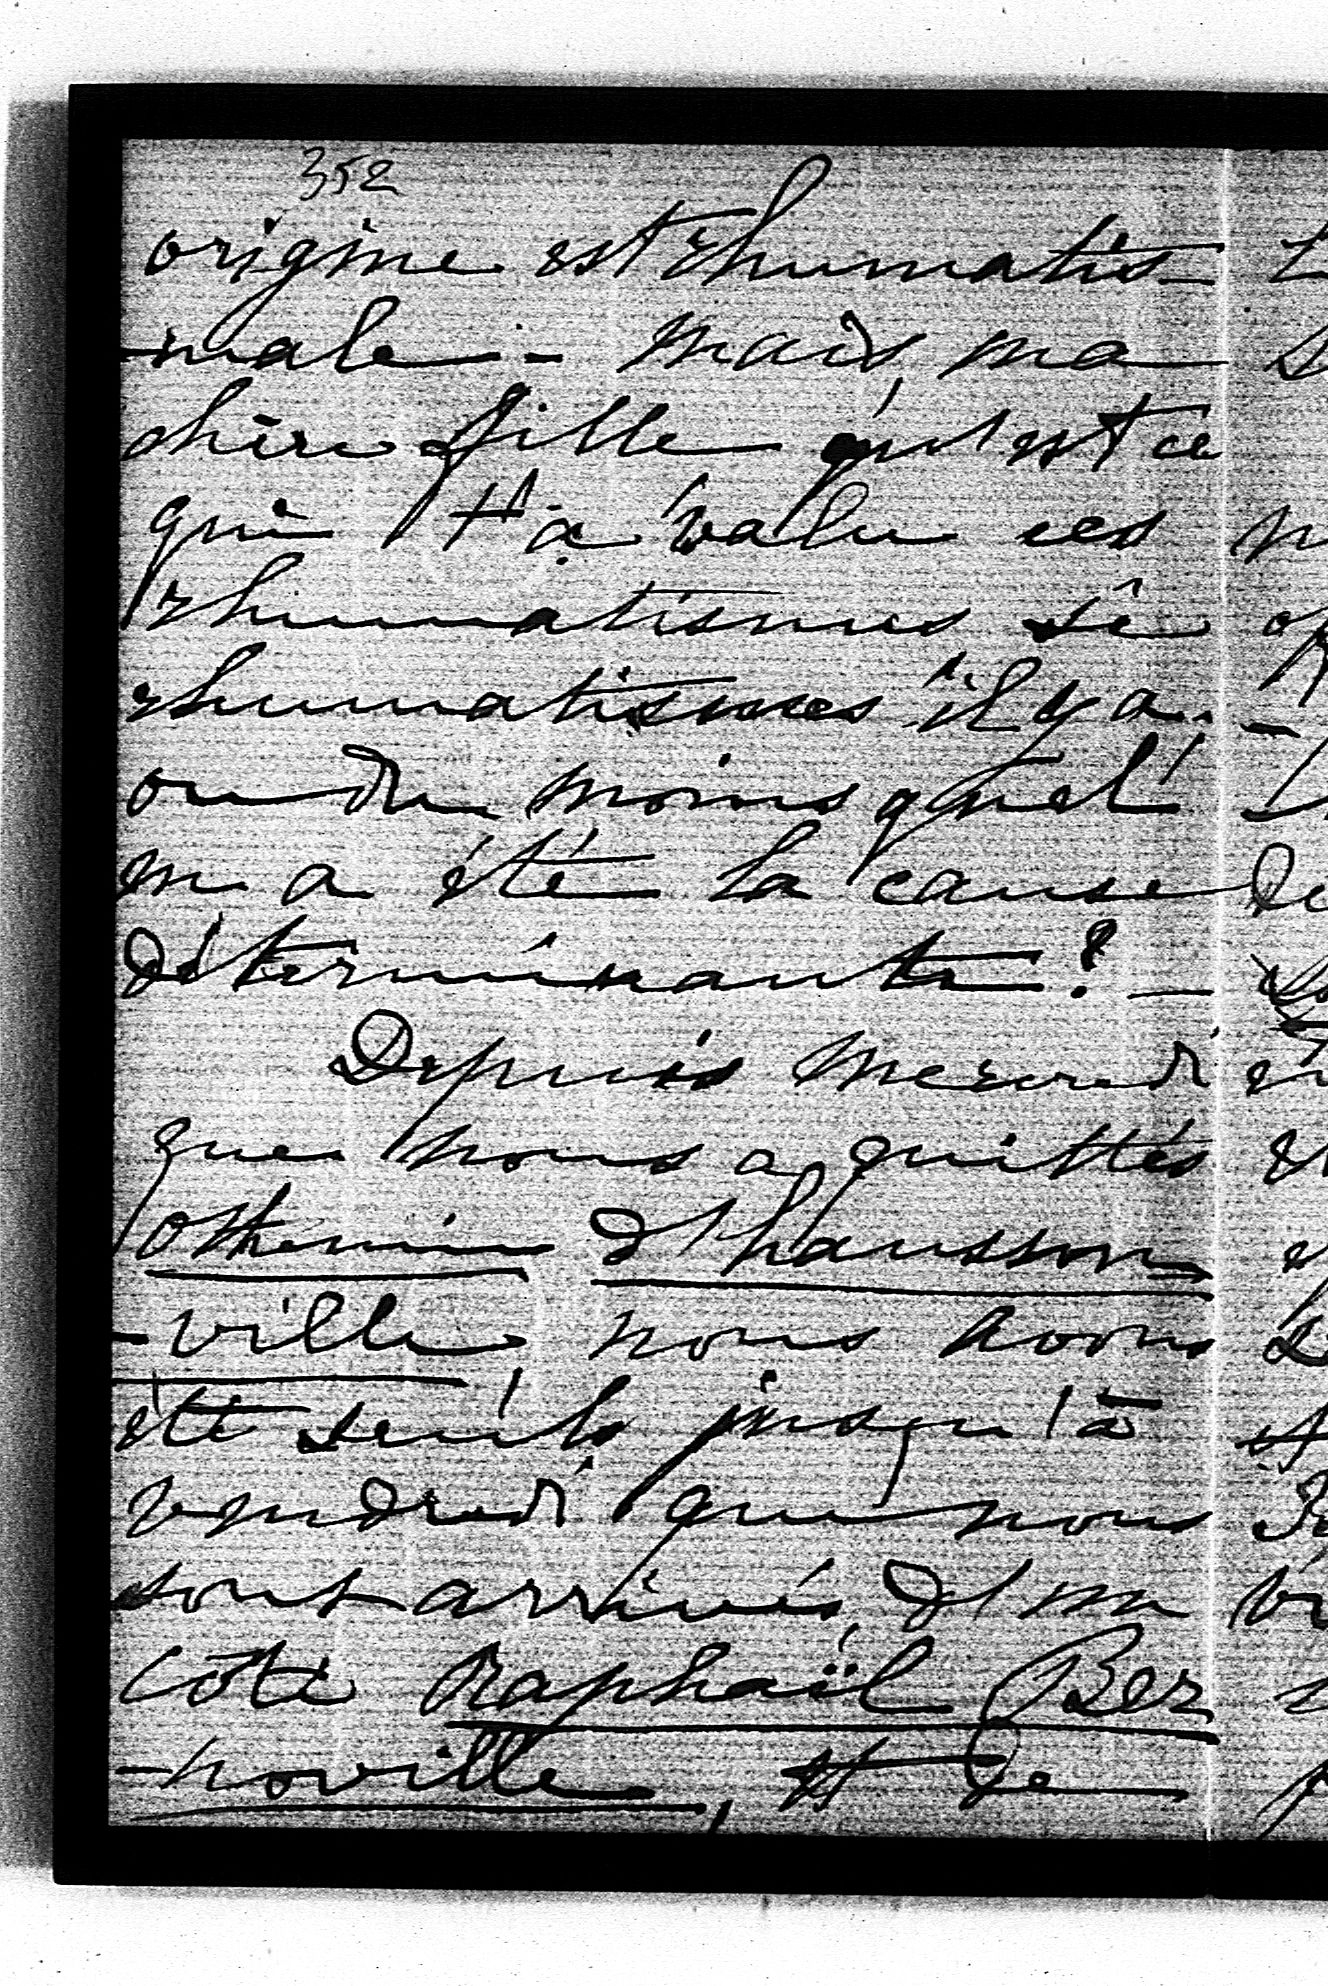 352
origine est rhumatis-
-male. - Mais, ma
chère fille, qu'est ce
qui t'a valu ces
rhumatismes si
rhumatismes il y a..
ou du moins quel
en a été la cause
déterminante? -
Depuis mercredi
que nous a quittés
Othenin d'Hausson
-ville, nous avons
été seuls jusqu'à
vendredi que nous
sont arrivés, d'un
côté Raphaël Ber
-noville, et de